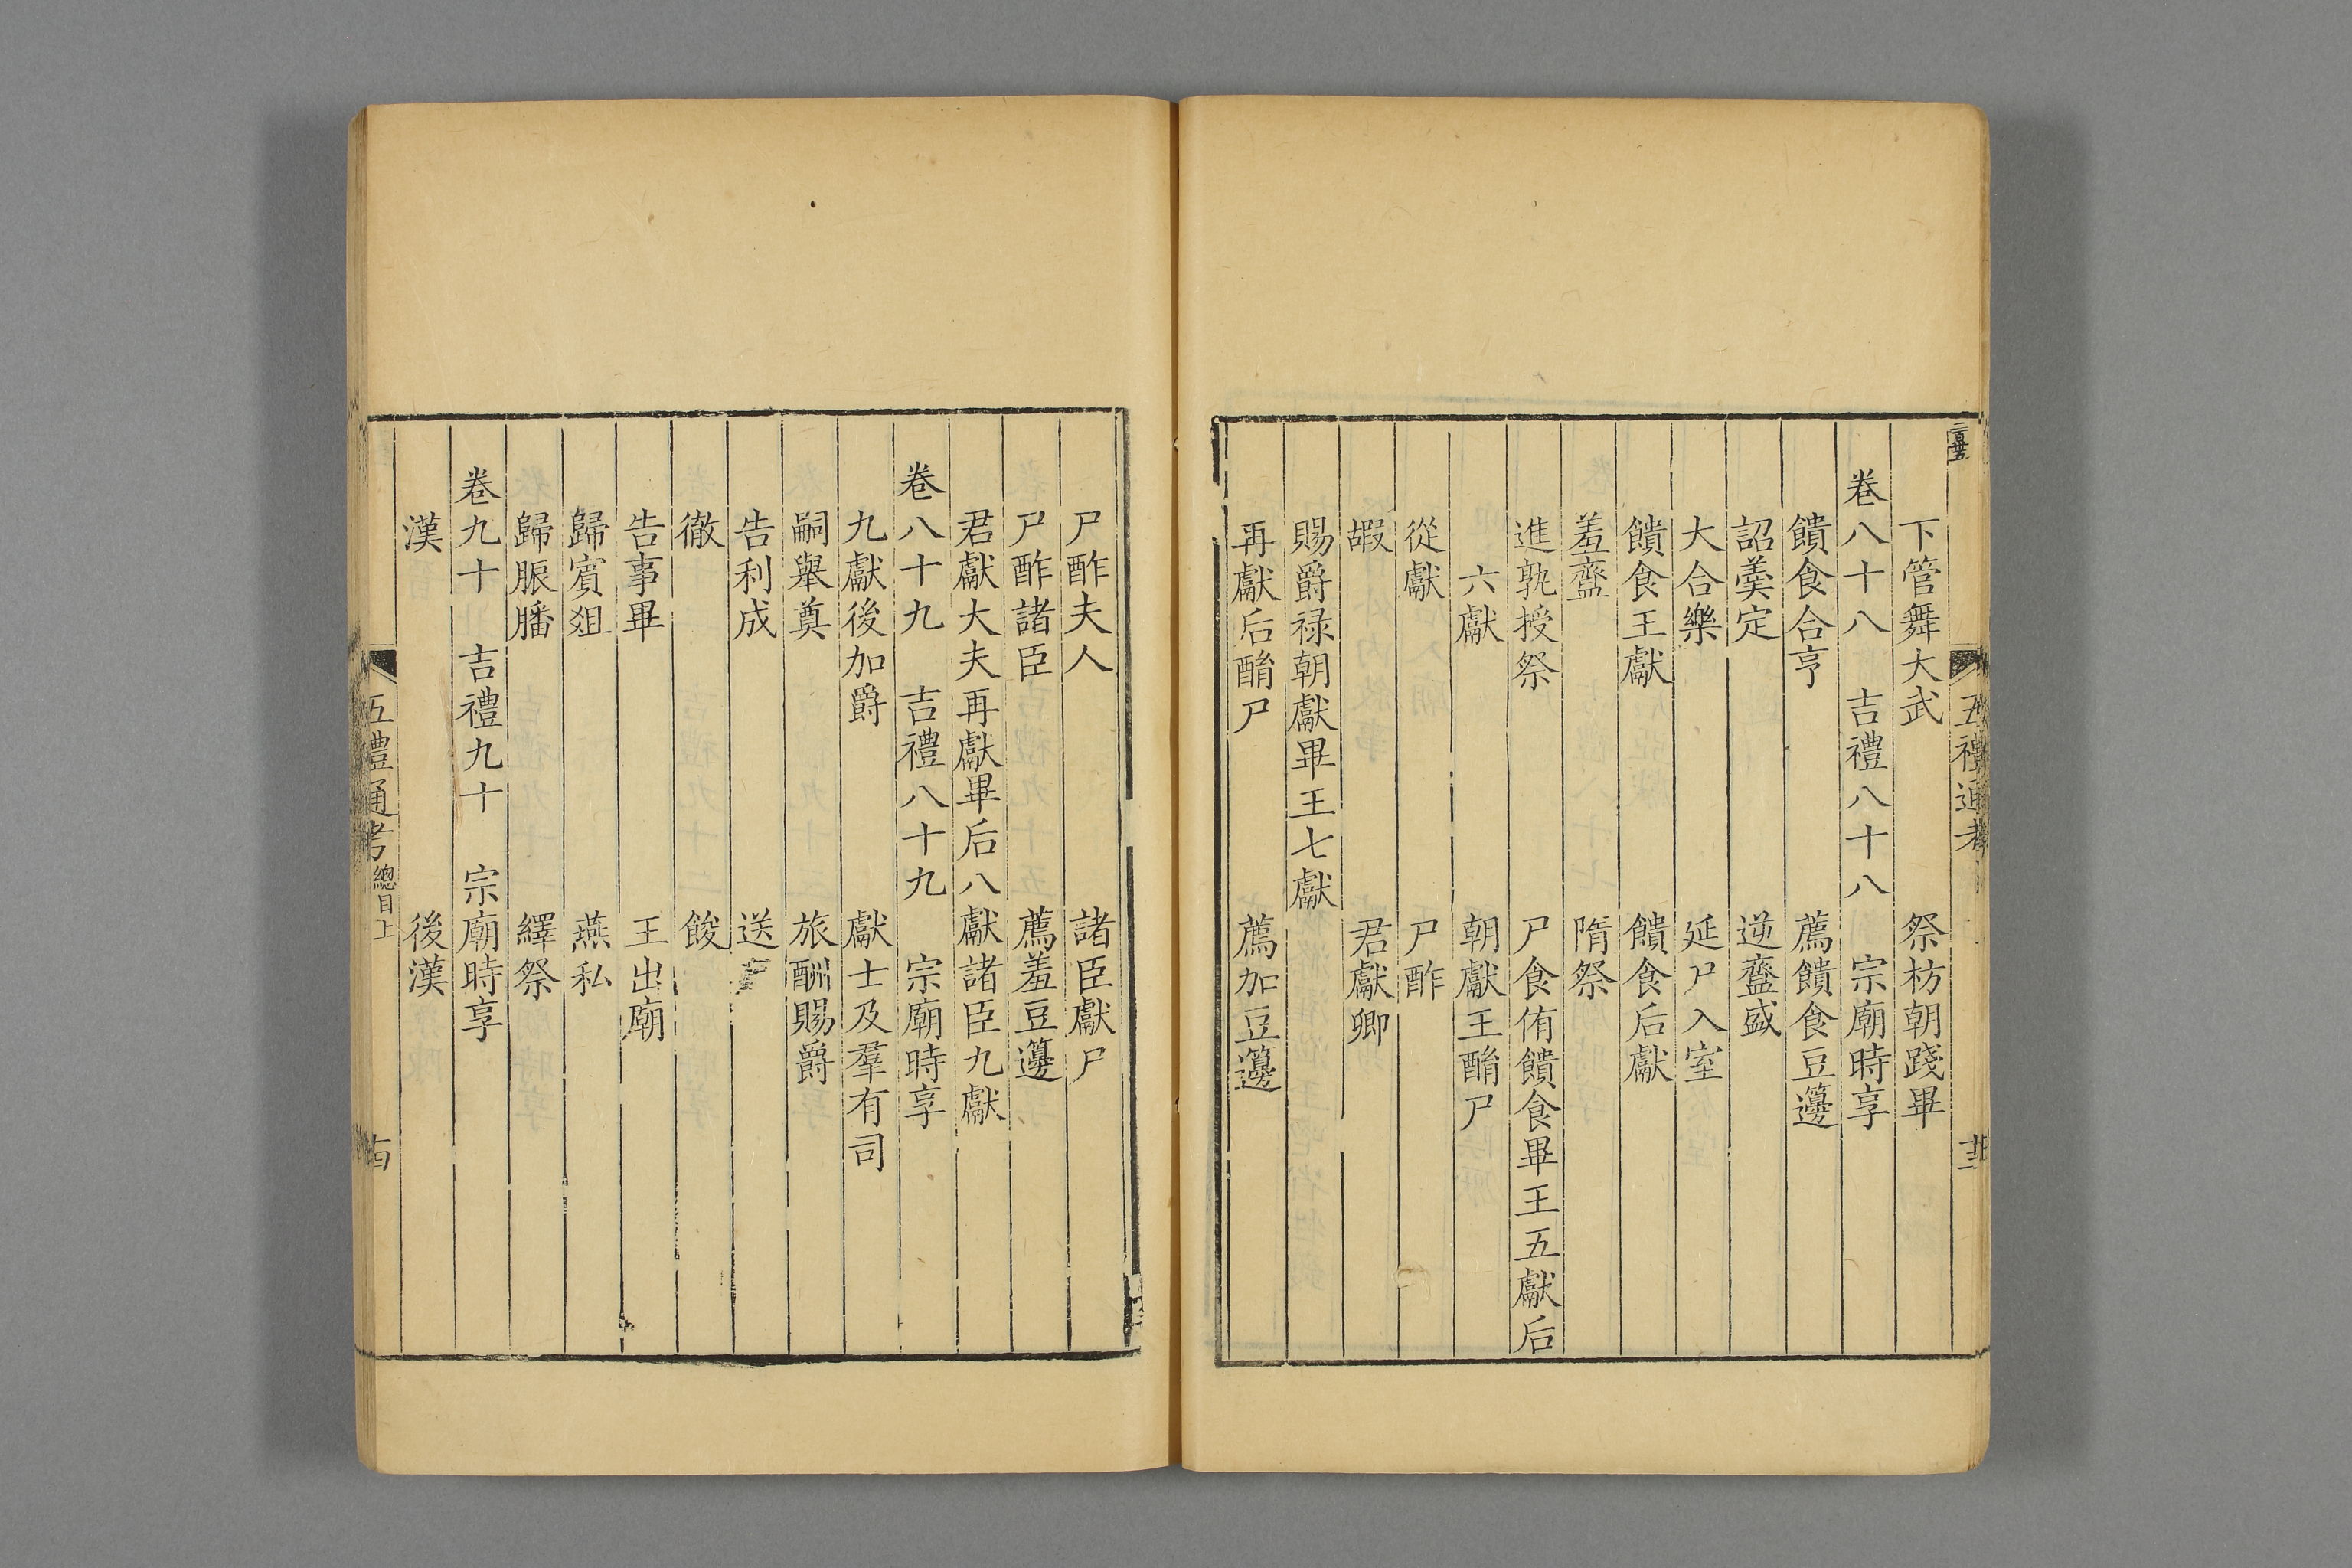 五禮通考
下管舞大武　祭枋朝踐畢
卷八十八　吉禮八十八　宗廟時享
饋食合亨　薦饋食豆籩
詔羹定　逆齍盛
大合樂　延尸入室
饋食王獻　饋食后獻
羞齍　隋祭
進孰授祭　尸食侑饋食畢王五獻后
六獻　朝獻王酳尸
從獻　尸酢
嘏　君獻卿
賜爵祿朝獻畢王七獻
再獻后酳尸　薦加豆籩
尸酢夫人　諸臣獻尸
尸酢諸臣　薦羞豆籩
君獻大夫再獻畢后八獻諸臣九獻
卷八十九　吉禮八十九　宗廟時享
九獻後加爵　獻士及羣有司
嗣舉奠　旅酬賜爵
告利成　送尸
徹　餕
告事畢　王出廟
歸賓俎　燕私
歸脤膰　繹祭
卷九十　吉禮九十　宗廟時享
漢　後漢
五禮通考 總目上